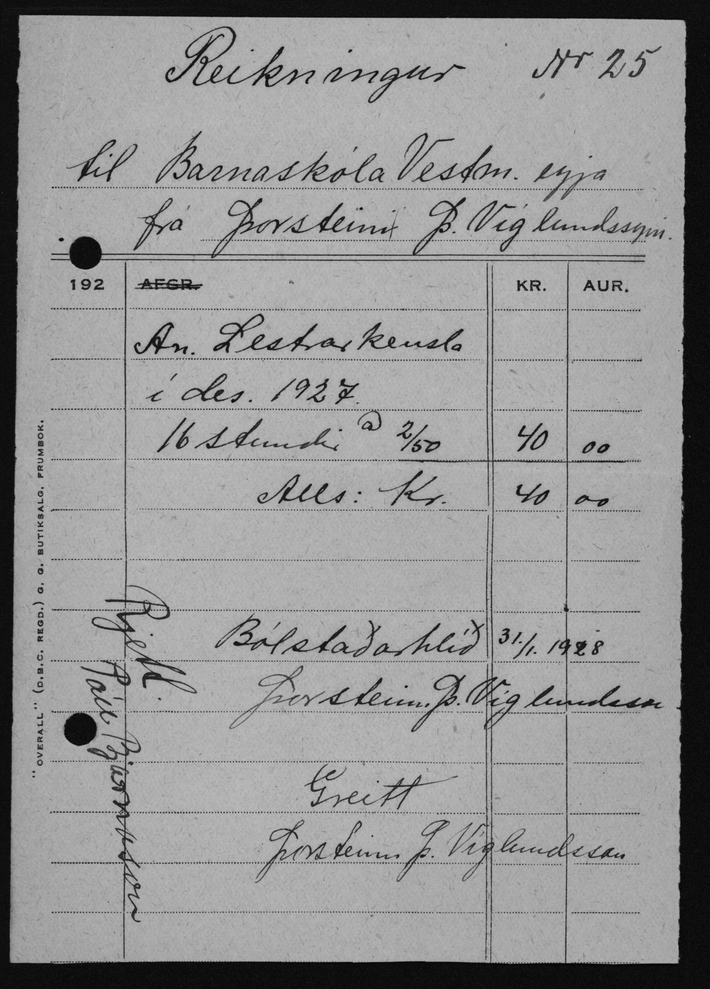 Reikningur Nr 25
til Barnaskóla Vestm.eyja
frá Þorsteini Þ. Víglundssyni.
192 AFGR. KR. AUR.
An. Lestrarkensla
í des. 1927.
16 stundir @ 2/50 40 00
Alls: Kr. 40 00
Bólstaðarhlíð 31./1. 1928
Þorsteinn Þ. Víglundsson.
Greitt
Þorsteinn Þ. Víglundsson
Rjett.
Páll Bjarnason
"OVERALL" (D.B.C. REGD.) G. G. BUTIKSALG. FRUMBOK.